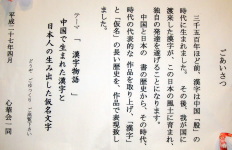 ごあいさつ
三千五百年ほど前、漢字は中国「殷」の
時代に生まれました。その後、我が国に
渡来した漢字が、この日本の風土に育まれ、
独自の発達を遂げることになります。
中国と日本の書の歴史から、その時代、
時代の代表的な作品を取り上げ、「漢字」
と「仮名」の長い歴史を、作品で表現致し
ました。
テーマ、「漢字物語」
中国で生まれた漢字と
日本人の生み出した仮名文字
どうぞ、ごゆっくりご高覧下さい
平成二十七年四月
心華会一同